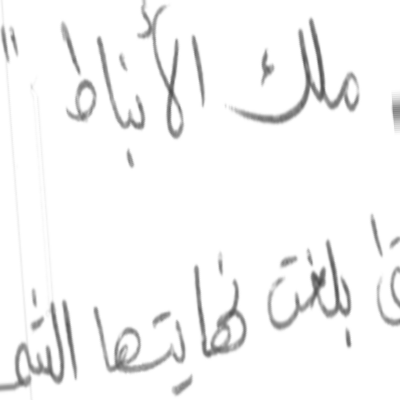 ملك الأنباط "
بلغت نهايتها الشم